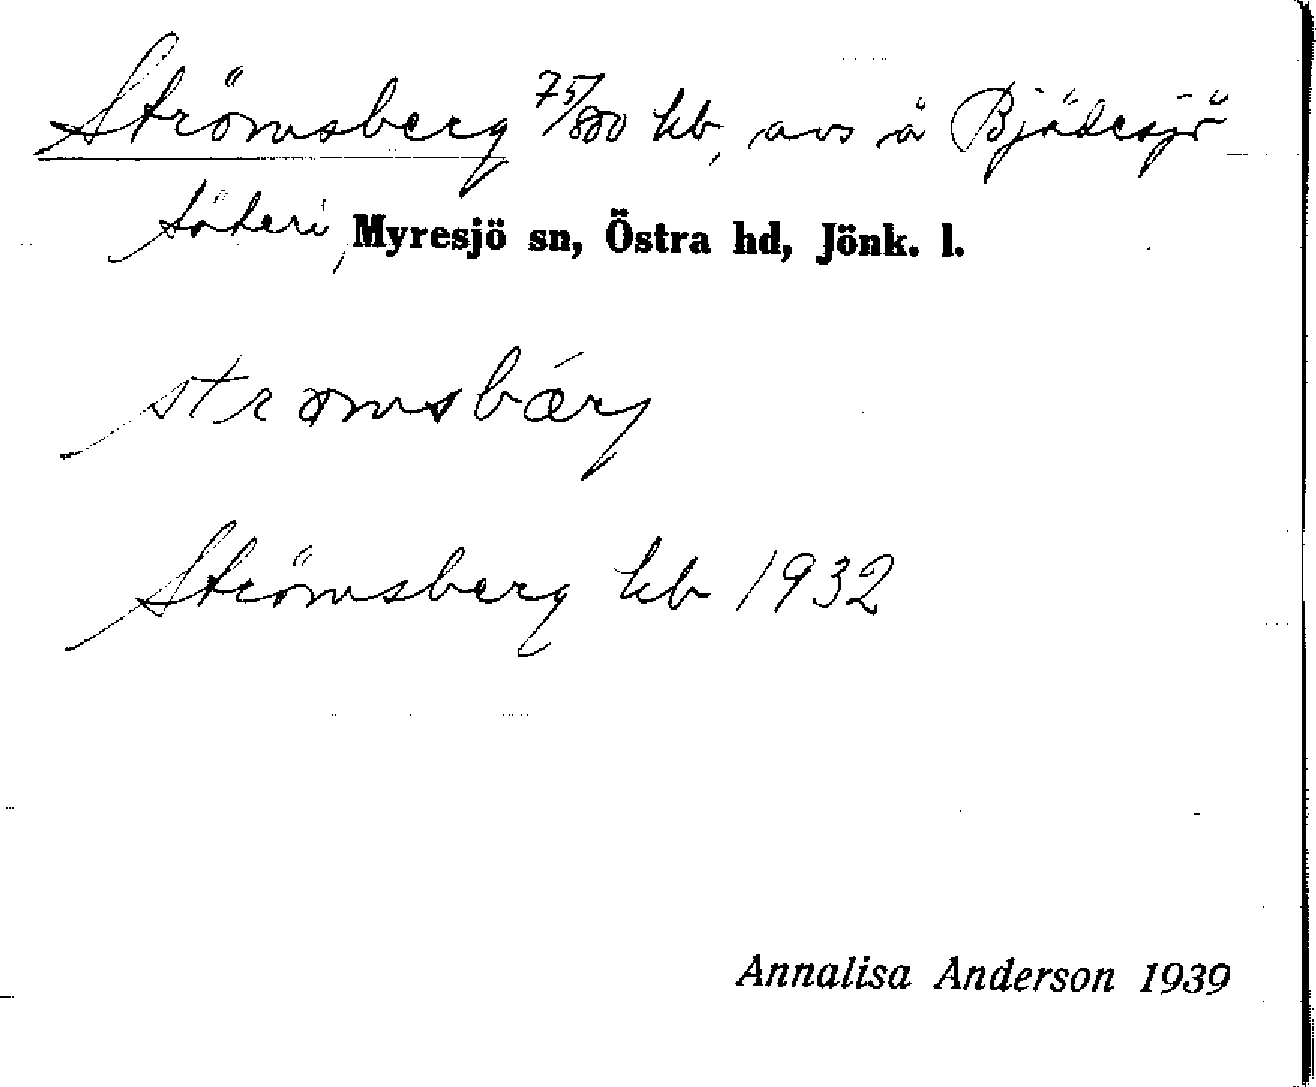 Strömsberg 75/800 hb, avs å Bjädesjö
säteri, Myresjö sn, Östra hd, Jönk. l.
strømsbærj
Strömsberg hb 1932
Annalisa Anderson 1939